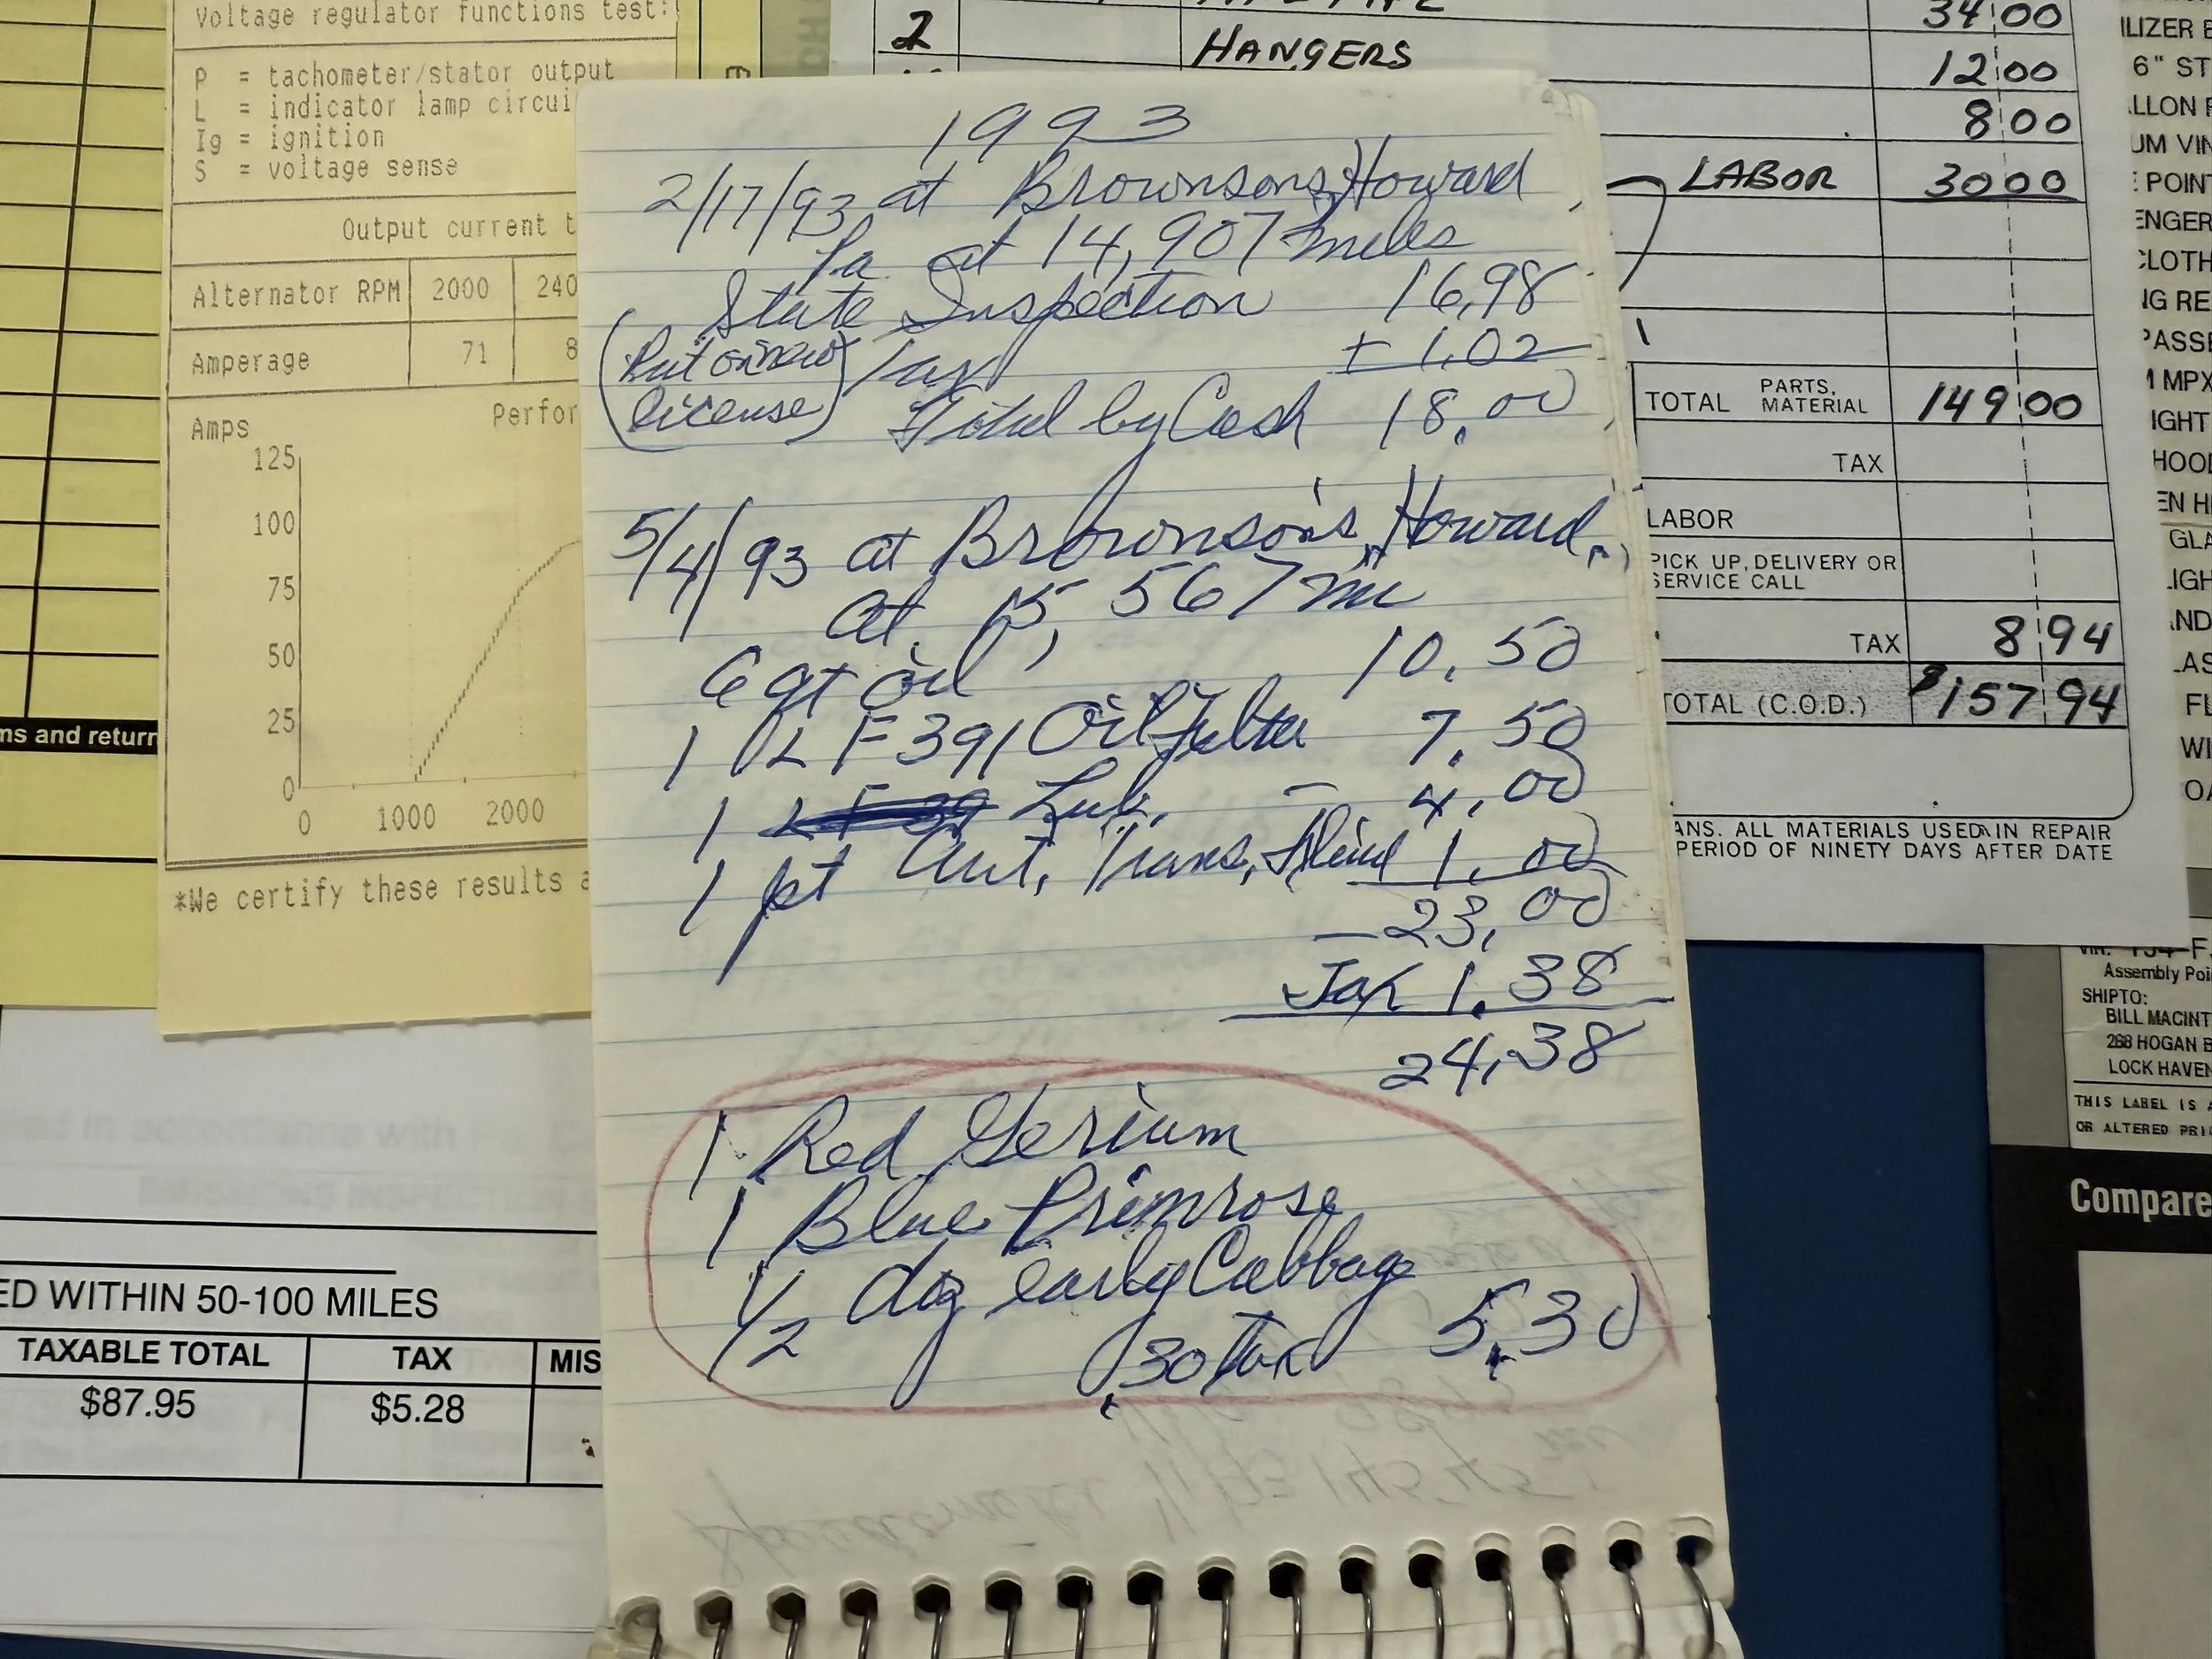 Voltage regulator functions test:
P = tachometer/stator output
L = indicator lamp circui
Ig = ignition
S = voltage sense
Output current t
Alternator RPM 2000 240
Amperage 71 8
Amps Perfor
125
100
75
50
25
0
0 1000 2000
*We certify these results a
ms and return
ED WITHIN 50-100 MILES
TAXABLE TOTAL TAX MIS
$87.95 $5.28
1993
2/17/93 at Brownsons, Howard
Pa at 14,907 miles
State Inspection 16,98
(Put on new Tax + 1,02
license) Total by Cash 18,00
5/4/93 at Brownson's, Howard,
at 15,567 mi
6 qt oil 10,50
1 LF391 Oil Filter 7,50
1 LF39 Lub, – 4,00
1 pt Aut, Trans, Fluid 1,00
23,00
Tax 1,38
24,38
1 Red Gerium
1 Blue Primrose
1/2 doz early Cabbage
,30 Tax 5,30
34 00
2 HANGERS 12 00
8 00
LABOR 30 00
TOTAL PARTS, MATERIAL 149 00
TAX
LABOR
PICK UP, DELIVERY OR
SERVICE CALL
TAX 8 94
TOTAL (C.O.D.) $157 94
ANS. ALL MATERIALS USED IN REPAIR
PERIOD OF NINETY DAYS AFTER DATE
ILIZER B
6" ST
LLON F
UM VIN
E POINT
ENGER
CLOTH
NG RE
PASSE
1 MPX
IGHT
HOOD
EN H
GLA
LIGH
AND
LAS
FL
WI
OA
VIN:
Assembly Poi
SHIPTO:
BILL MACINT
268 HOGAN B
LOCK HAVEN
THIS LABEL IS A
OR ALTERED PRI
Compare